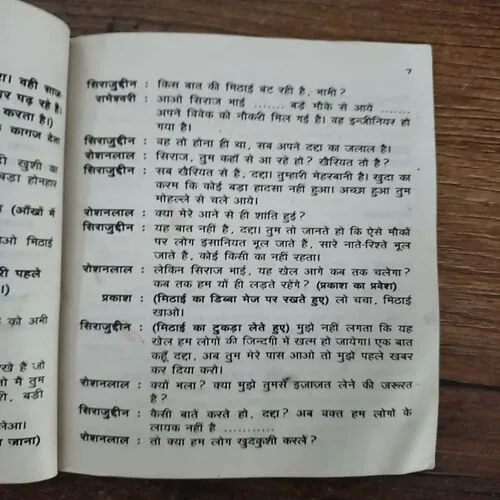 रा। वही साज-
पर पढ़ रहे हैं।
करता है।)
कागज देता
दी खुशी का
बड़ा होनहार
(आँखों में
आओ मिठाई
री पहले
।)
को अभी
रखे हैं जो
तो मै तुम
री, बड़ी
लेआ।
जाना)
7
सिराजुद्दीन : किस बात की मिठाई बंट रही है, भाभी?
रामेश्वरी : आओ सिराज भाई ........ बड़े मौके से आये ........
अपने विवेक को नौकरी मिल गई है। वह इन्जीनियर हो
गया है।
सिराजुद्दीन : वह तो होना ही था, सब अपने दद्दा का जलाल है।
रोशनलाल : सिराज, तुम कहाँ से आ रहे हो? खैरियत तो है?
सिराजुद्दीन : सब खैरियत से है, दद्दा। तुम्हारी मेहरबानी है। खुदा का
करम कि कोई बड़ा हादसा नहीं हुआ। अच्छा हुआ तुम
मोहल्ले से चले आये।
रोशनलाल : क्या मेरे आने से ही शांति हुई?
सिराजुद्दीन : यह बात नहीं है, दद्दा। तुम तो जानते हो कि ऐसे मौकों
पर लोग इंसानियत भूल जाते हैं, सारे नाते-रिश्ते भूल
जाते हैं, कोई किसी का नहीं रहता।
रोशनलाल : लेकिन सिराज भाई, यह खेल आगे कब तक चलेगा?
कब तक हम यों ही लड़ते रहेंगे? (प्रकाश का प्रवेश)
प्रकाश : (मिठाई का डिब्बा मेज पर रखते हुए) लो चचा, मिठाई
खाओ।
सिराजुद्दीन : (मिठाई का टुकड़ा लेते हुए) मुझे नहीं लगता कि यह
खेल हम लोगों की जिन्दगी में खत्म हो जायेगा। एक बात
कहूँ दद्दा, अब तुम मेरे पास आओ तो मुझे पहले खबर
कर दिया करो।
रोशनलाल : क्यों भला? क्या मुझे तुमसे इजाजत लेने की जरूरत
है?
सिराजुद्दीन : कैसी बातें करते हो, दद्दा? अब वक्त हम लोगों के
लायक नहीं है ...........
रोशनलाल : तो क्या हम लोग खुदकुशी करलें?